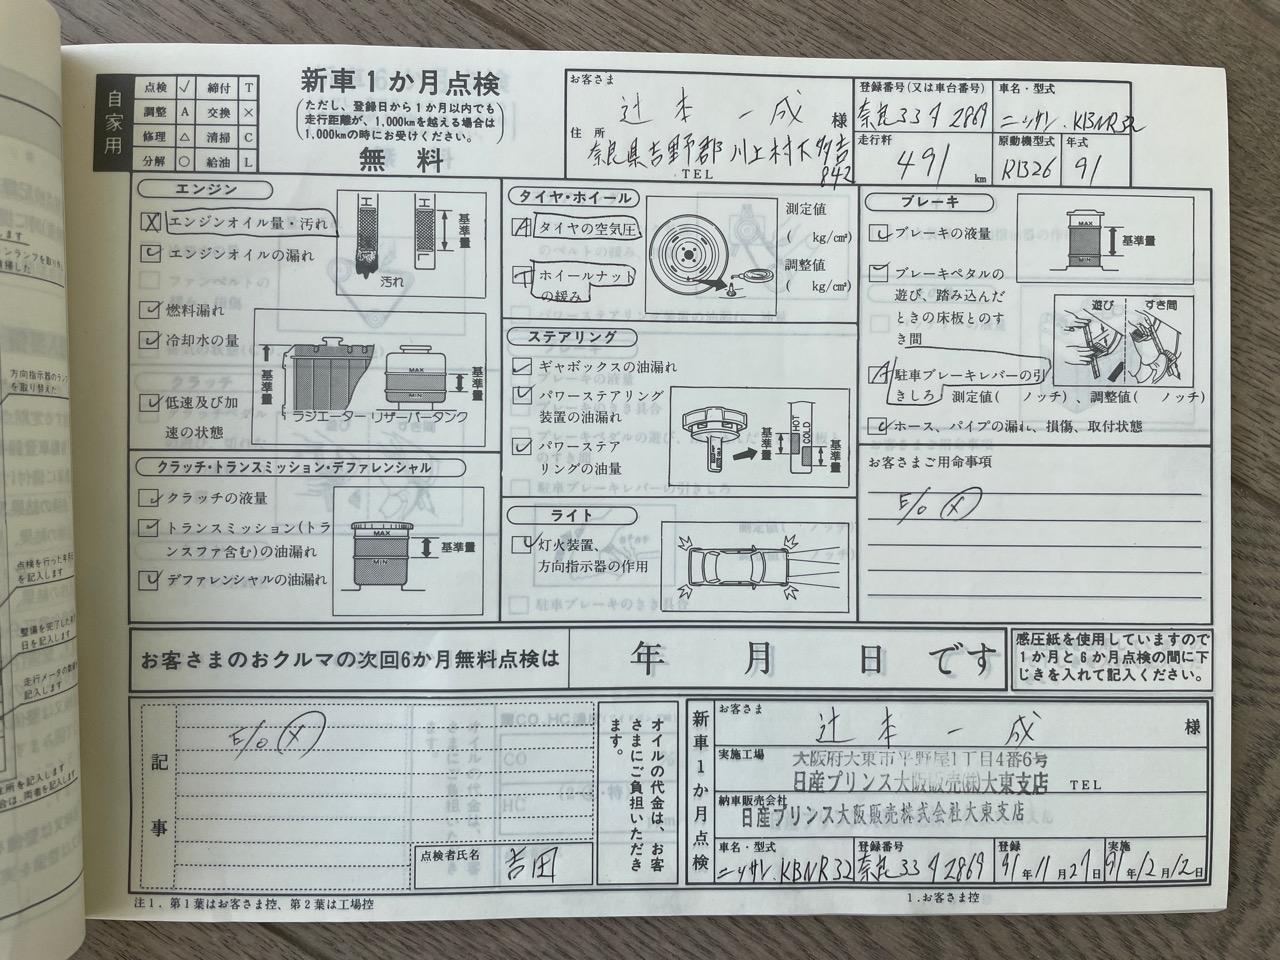 自家用
点検 ✓ 締付 T
調整 A 交換 ×
修理 △ 清掃 C
分解 ○ 給油 L
新車1か月点検
(ただし、登録日から1か月以内でも
走行距離が、1,000kmを越える場合は
1,000kmの時にお受けください。)
無料
お客さま
辻本一成 様
住所
奈良県吉野郡川上村下多古
842
TEL
登録番号(又は車台番号)
奈良33 タ 2869
車名・型式
ニッサン KBNR32
走行粁
491 km
原動機型式
RB26
年式
91
エンジン
X エンジンオイル量・汚れ
エンジンオイルの漏れ
燃料漏れ
冷却水の量
低速及び加
速の状態
基準量
汚れ
基準量
MAX
MIN
基準量
ラジエーター リザーバータンク
クラッチ・トランスミッション・デファレンシャル
クラッチの液量
トランスミッション(トラ
ンスファ含む)の油漏れ
デファレンシャルの油漏れ
MAX
MIN
基準量
タイヤ・ホイール
A タイヤの空気圧
T ホイールナット
の緩み
測定値
( kg/cm²)
調整値
( kg/cm²)
ステアリング
ギャボックスの油漏れ
パワーステアリング
装置の油漏れ
パワーステア
リングの油量
基準量
HOT
COLD
基準量
ライト
灯火装置、
方向指示器の作用
ブレーキ
ブレーキの液量
ブレーキペダルの
遊び、踏み込んだ
ときの床板とのす
き間
A 駐車ブレーキレバーの引
きしろ 測定値( ノッチ)、調整値( ノッチ)
ホース、パイプの漏れ、損傷、取付状態
MAX
MIN
基準量
遊び
すき間
お客さまご用命事項
E/O X
お客さまのおクルマの次回6か月無料点検は 年 月 日 です
感圧紙を使用していますので
1か月と6か月点検の間に下
じきを入れて記入ください。
記事
E/O X
点検者氏名
吉田
オイルの代金は、お客
さまにご負担いただき
ます。
新車1か月点検
お客さま
辻本一成 様
実施工場
大阪府大東市平野屋1丁目4番6号
日産プリンス大阪販売(株)大東支店 TEL
納車販売会社
日産プリンス大阪販売株式会社大東支店
車名・型式
ニッサン KBNR32
登録番号
奈良33 タ 2869
登録
91年11月27日
実施
91年12月12日
注1.第1葉はお客さま控、第2葉は工場控
1.お客さま控
方向指示器のランプ
を取り替えた
点検を行った年月日
を記入します
整備を完了した年月
日を記入します
走行メータの数値を
記入します